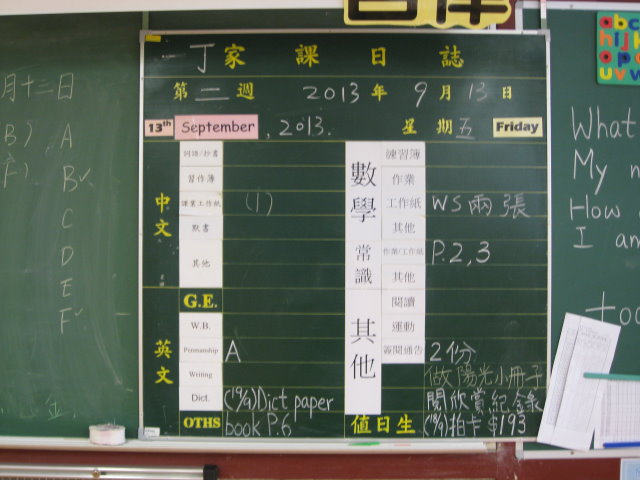 丁家課日誌
第二週 2013年9月13日
13th September, 2013. 星期五 Friday
月十三日
B)
F)
A
B✓
C
D
E
F✓
中文
詞語/抄書
習作簿
課業工作紙 (1)
默書
其他
英文
G.E.
W.B.
Penmanship A
Writing
Dict. (19/9)Dict paper
OTHS book P.6
數學
練習簿
作業
工作紙 WS兩張
其他
常識
作業/工作紙 P.2,3
其他
其他
閱讀
運動
簽閱通告 2份
做陽光小冊子
閱欣賞紀錄
值日生 (19/9)拍卡$193
abc
hijk
opq
uvw
What
My n
How
I am
too